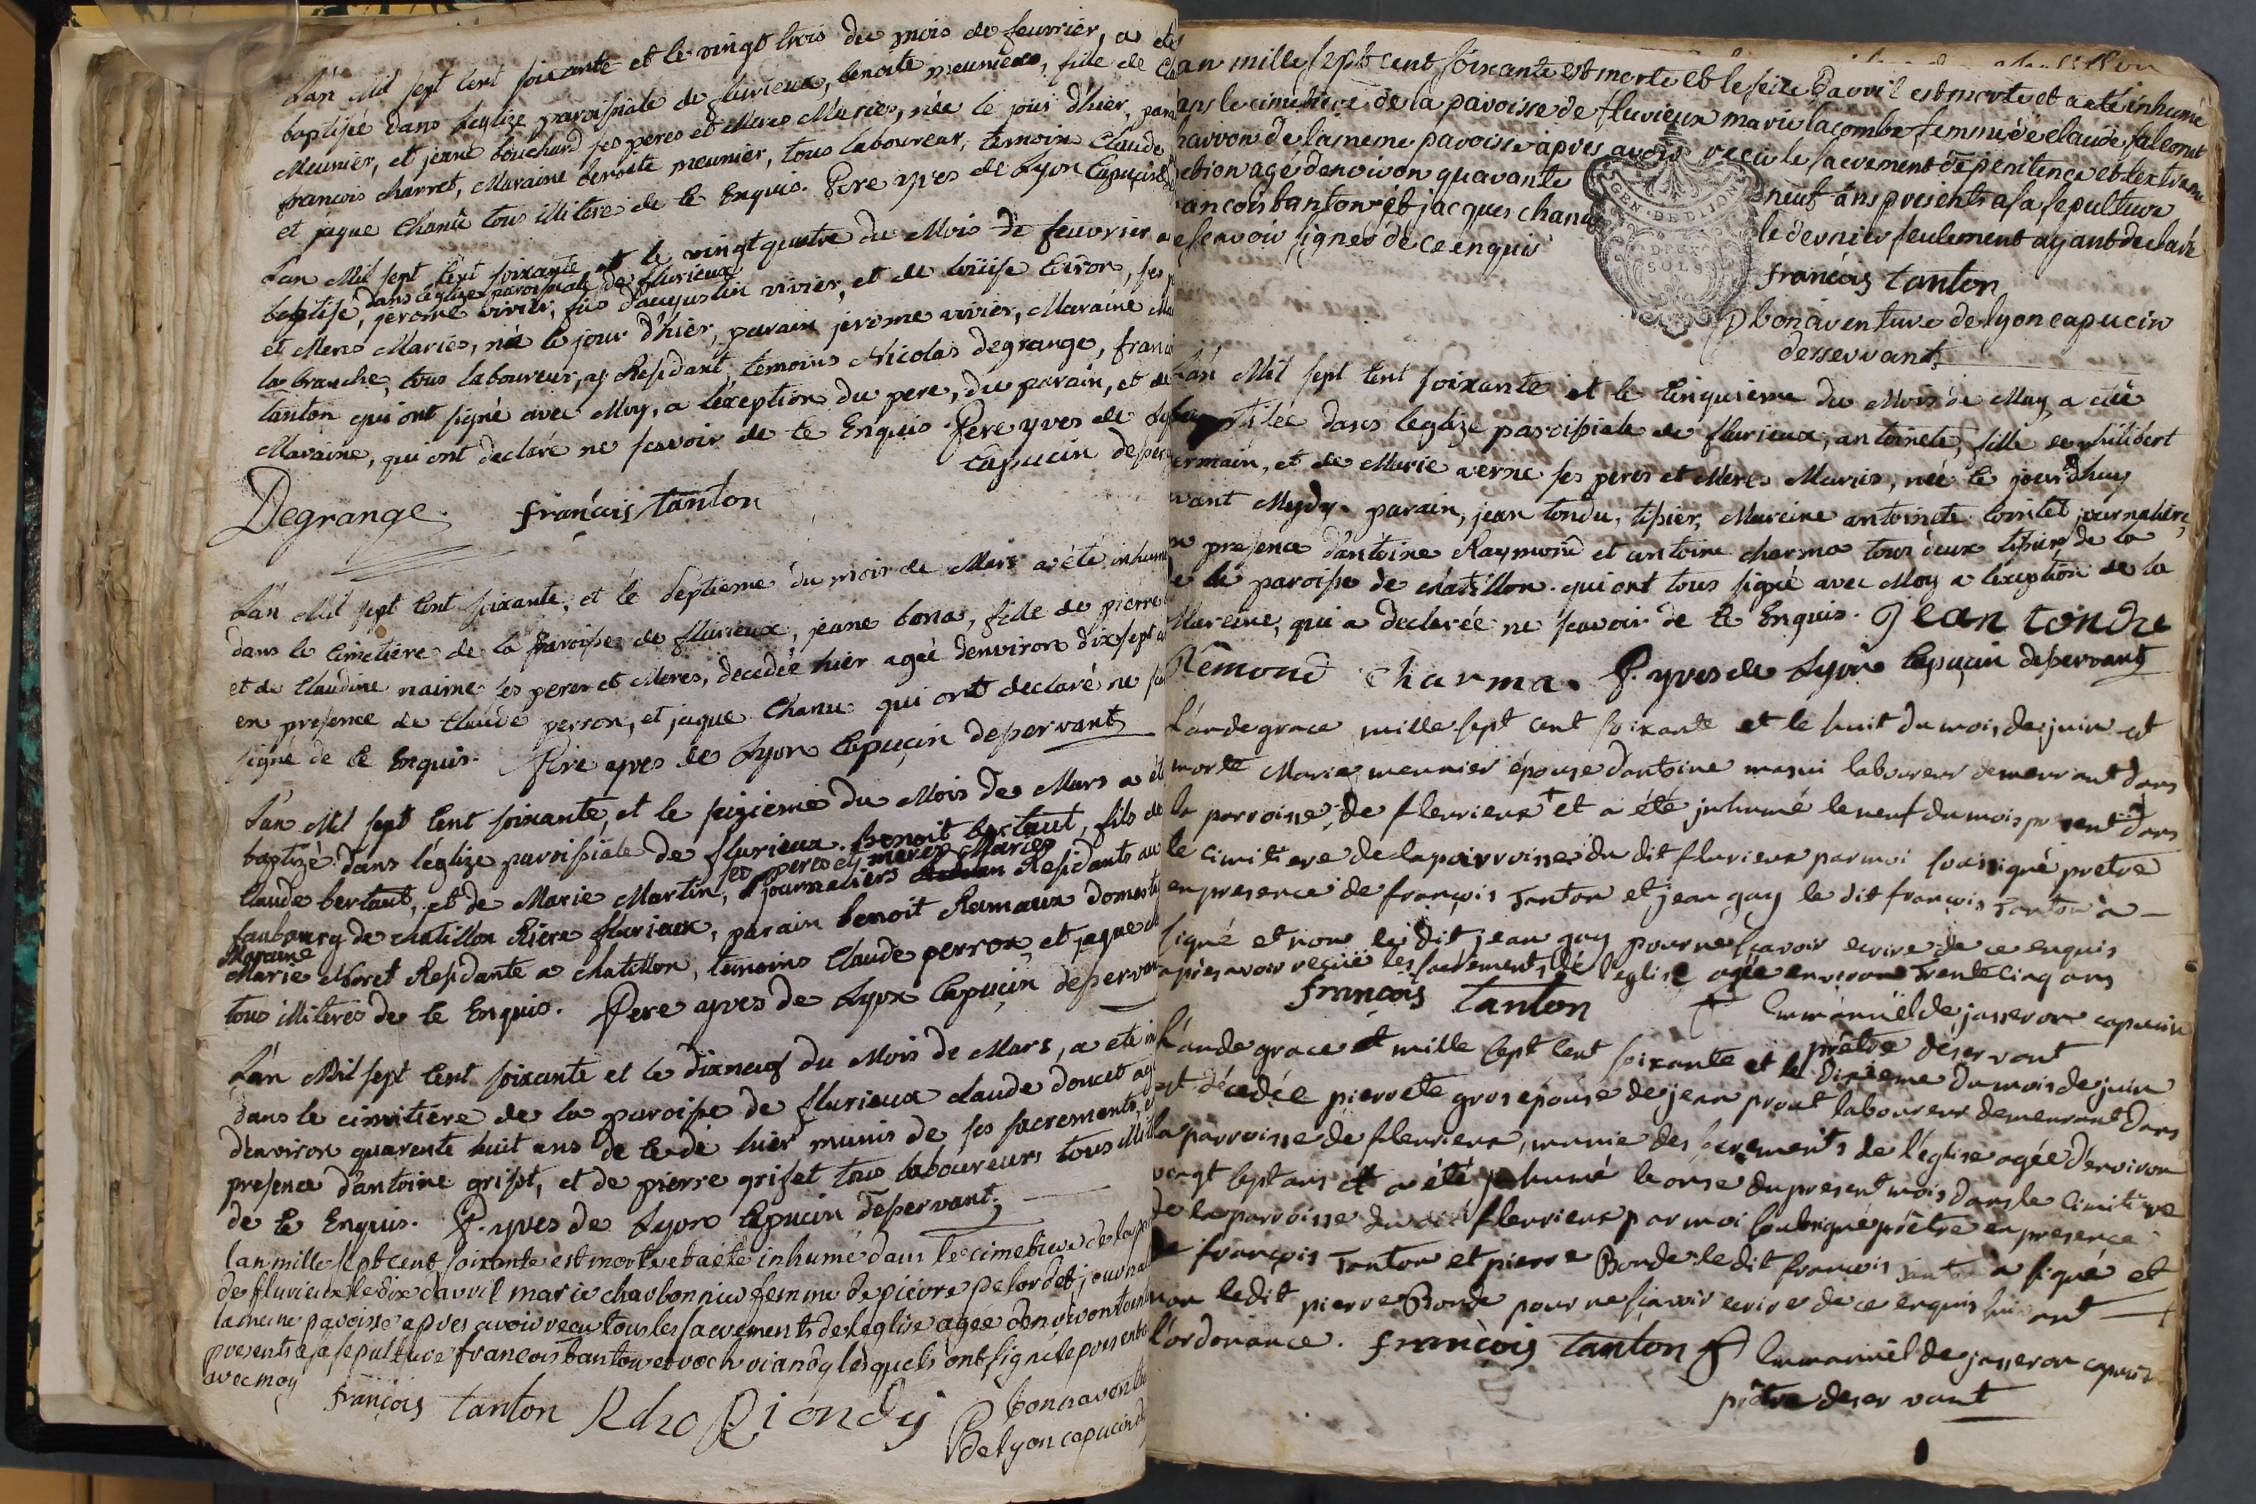 L'an Mil sept cent soixante et le vingt trois du mois de feuvrier, a ete
baptisée dans l'eglize paroissiale de flurieux, benoite meuniere, fille de
Meunier, et jeane bouchard ses peres et Meres Mariés, née le jour d'hier, parain
francois charret, Maraine benoite meunier, tous laboureur, temoin Claude
et jaque Chanu tous illiteré de ce Enquis. Pere yves de Lyon Capucin
L'an Mil sept cent soixante et le vingtquatre du Mois de feuvrier a
dans l'eglize paroissiale de flurieux
baptisé, jerome vivier, fils d'augustin vivier, et de loüise Ciron, ses
et Meres Mariés, né le jour d'hier, parain jerome vivier, Maraine
la branche, tous laboureur, Residant, temoins Nicolas degrange, franc
tanton qui ont signé avec Moy, a l'exception du pere, du parain, et de
Maraine, qui ont declaré ne scavoir de ce Enquis. Pere yves de
capucin
Degrange françois tanton
L'an Mil sept cent soixante, et le septieme du mois de Mars a été inhumé
dans le cimetiere de la paroisse de flurieux, jeane bona, fille de pierre
et de Claudine naime ses peres et Meres, decedée hier agée d'environ dix sept
en presence de Claude perron, et jaque Chanu qui ont declaré ne
signé de ce Enquis. Pere yves de Lyon Capucin desservant
L'an Mil sept cent soixante, et le seizieme du Mois de Mars a été
baptizé dans l'églize paroissiale de flurieux benoit bertaut, fils de
ses peres et meres Mariés
Claude bertaut, et de Marie Martin, journaliers Residants au
faubourg de chatillon Riere flurieux, parain benoit Ramaux domest
Maraine
Marie Moret Residante a chatillon, temoins Claude perron, et jaque
tous illiterés de ce Enquis. Pere yves de Lyon Capucin
L'an Mil sept cent soixante et le dixneuf du Mois de Mars, a eté
dans le cimitiere de la paroisse de flurieux claude doncet
d'environ quarente huit ans de cedé hier munis de ses sacrements,
presence d'antoine griset, et de pierre grizet tous laboureurs tous
de ce Enquis. P. yves de Lyon Capucin desservant
lan mille sept cent soixante est morte et a été inhumé dans le cimetiere de la
de flurieux le dix d'avril marie charbonnier femme de pierre
la meme paroisse apres avoir recu tous les sacrements de leglise agée denviron
presents a sa sepulture francois tanton et roch riandy lesquels ont signé le present
avec moy
françois tanton Riondy
P bonaventu
de lyon capucin
an mille sept cent soixante est morte et le seize d'avril est morte et a été inhumé
le cimetiere de la paroisse de fluvieux marie lacombe femme de claude
de la meme paroisse apres avoir recu le sacrement de penitence et extreme
agé denviron quarante neuf ans presents a sa sepulture
francois tanton et jacques chanu le dernier seulement ayant declaré
scavoir signer de ce enquis
GEN. DE DIJON
SOLS
françois tanton
P bonaventure de lyon capucin
desservant
L'an Mil sept cent soixante et le Cinquieme du Mois de May a eté
dans leglize paroissiale de flurieux, antoinete, fille de philibert
ermain, et de Marie verne ses peres et Meres Mariés, née le jourdhuy
avant Mydy. parain, jean tondu, tisier, Mareine antoinete Cointet journaliere,
presence d'antoine Raymond et antoine charma tous deux tisier de la
paroisse de chatillon. qui ont tous signé avec Moy a l'exception de la
Mareine, qui a declarée ne scavoir de ce Enquis. Jean tondu
Rêmond charma. P. yves de Lyon Capucin desservant
L'an de grace mille sept cent soixante et le huit du mois de juin est
morte Marie meunier épouse d'antoine laboureur demeurant dans
la parroisse de fleurieux et a été inhumé le neuf du mois present dans
le cimitiere de la parroisse du dit flurieux par moi soussigné pretre
en presence de françois Tanton et jean gay le dit françois Tanton à
signé et non le dit jean gay pour ne sçavoir ecrire de ce enquis
après avoir reçüe les sacrements de l'eglise agée environ Trente cinq ans
françois tanton f Emmanüel de jasseron capucin
prêtre deservant
L'an de grace mille sept cent soixante et le dixieme du mois de juin
est décedée pierrete gros épouse de jean prout laboureur demeurant dans
la parroisse de fleurieux, munie des sacrements de l'église agée d'environ
vingt sept ans et a été inhumé le onse du present mois dans le cimitiere
de la parroisse du dit fleurieux par moi soubsigné prêtre en presence
de françois Tanton et pierre Borde le dit françois Tanton a signé et
non ledit pierre Borde pour ne sçavoir ecrire de ce enquis suivant
l'ordonance. françois tanton f Emmanüel de jasseron capucin
prêtre deservant